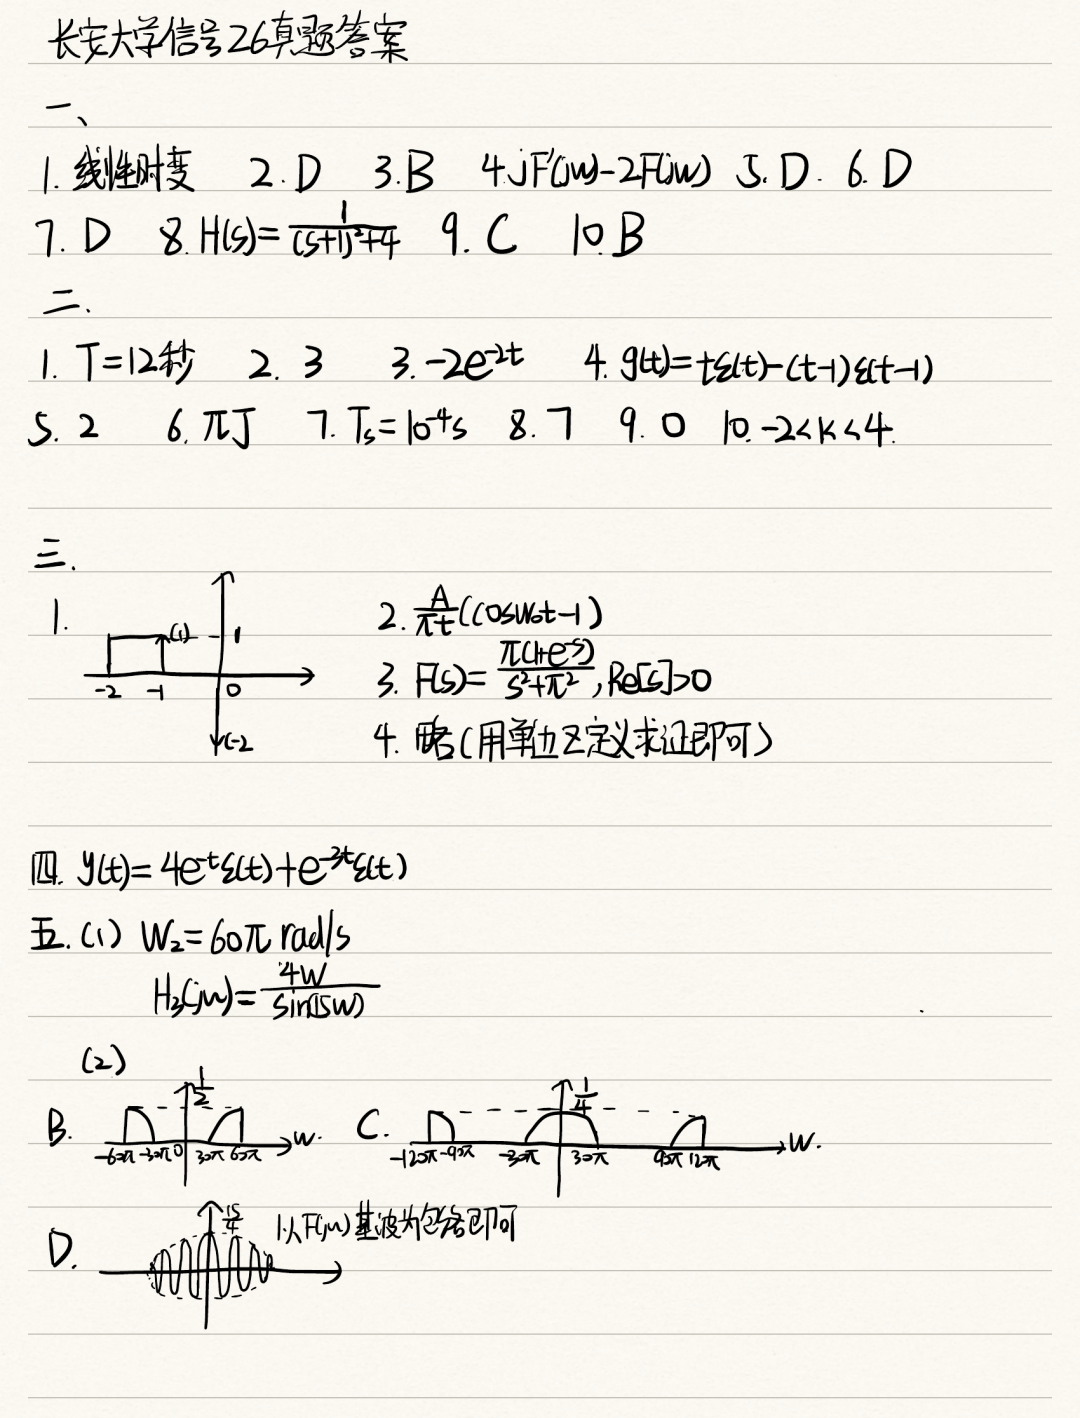 长安大学信号26真题答案
一、
1. 线性时变 2. D 3. B 4. jF'(jw)-2F(jw) 5. D. 6. D
7. D 8. H(s)=1/((s+1)²+4) 9. C 10. B
二.
1. T=12秒 2. 3 3. -2e^-2t 4. g(t)=tε(t)-(t-1)ε(t-1)
5. 2 6. πJ 7. Ts=10^-4s 8. 7 9. 0 10. -2<k<4.
三.
1. (1) 1 -2 -1 0 (-2
2. A/πt(cosw₀t-1)
3. F(s)=π(1+e^-s)/(s²+π²), Re[s]>0
4. 略(用单边Z定义求证即可)
四. y(t)=4e^-tε(t)+e^-3tε(t)
五. (1) W₂=60π rad/s
H₃(jw)=4w/sin(15w)
(2)
B. 1/2 -60π -30π 0 30π 60π w.
C. 1/4 -120π -90π -30π 30π 90π 12π w.
D. 15/4 以F(jw)基波为包络即可